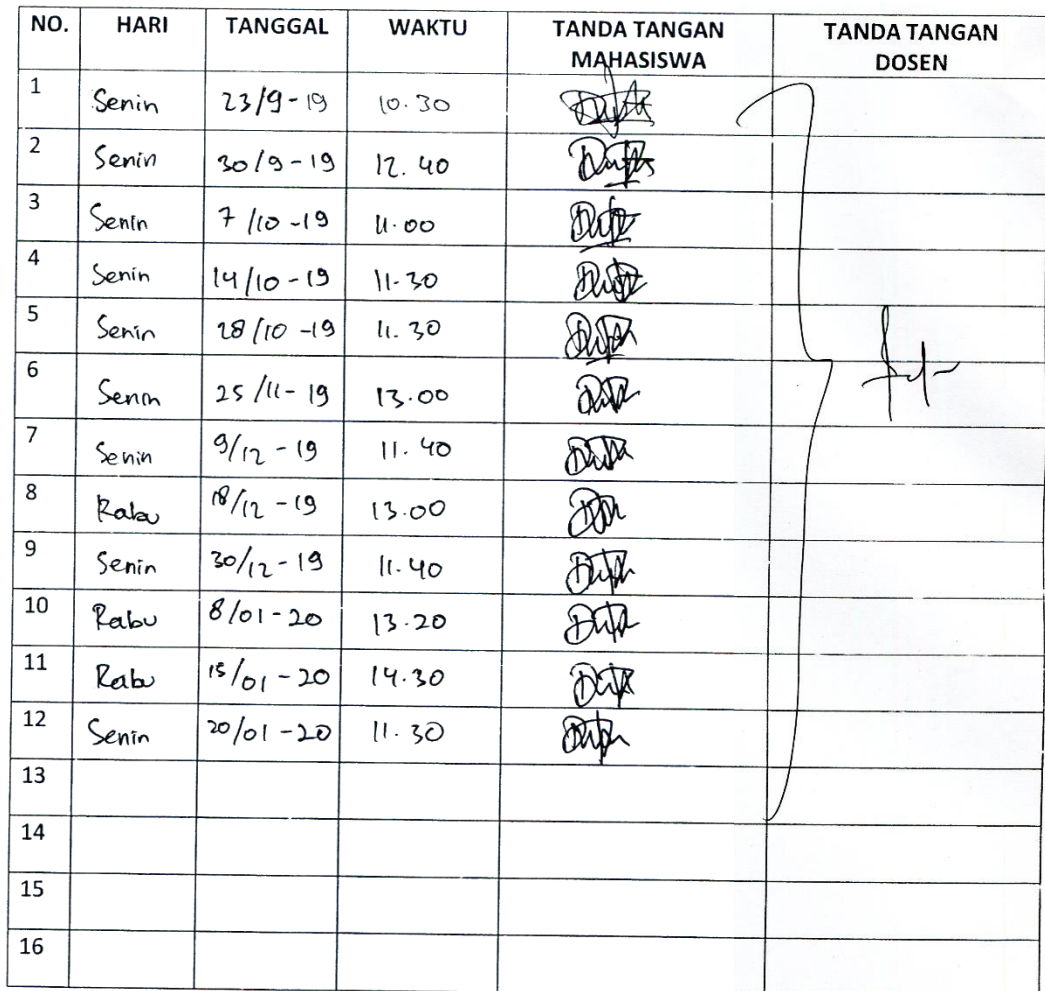 NO. HARI TANGGAL WAKTU TANDA TANGAN MAHASISWA TANDA TANGAN DOSEN
1 Senin 23/9-19 10.30
2 Senin 30/9-19 12.40
3 Senin 7/10-19 11.00
4 Senin 14/10-19 11.30
5 Senin 28/10-19 11.30
6 Senin 25/11-19 13.00
7 Senin 9/12-19 11.40
8 Rabu 18/12-19 13.00
9 Senin 30/12-19 11.40
10 Rabu 8/01-20 13.20
11 Rabu 15/01-20 14.30
12 Senin 20/01-20 11.30
13
14
15
16